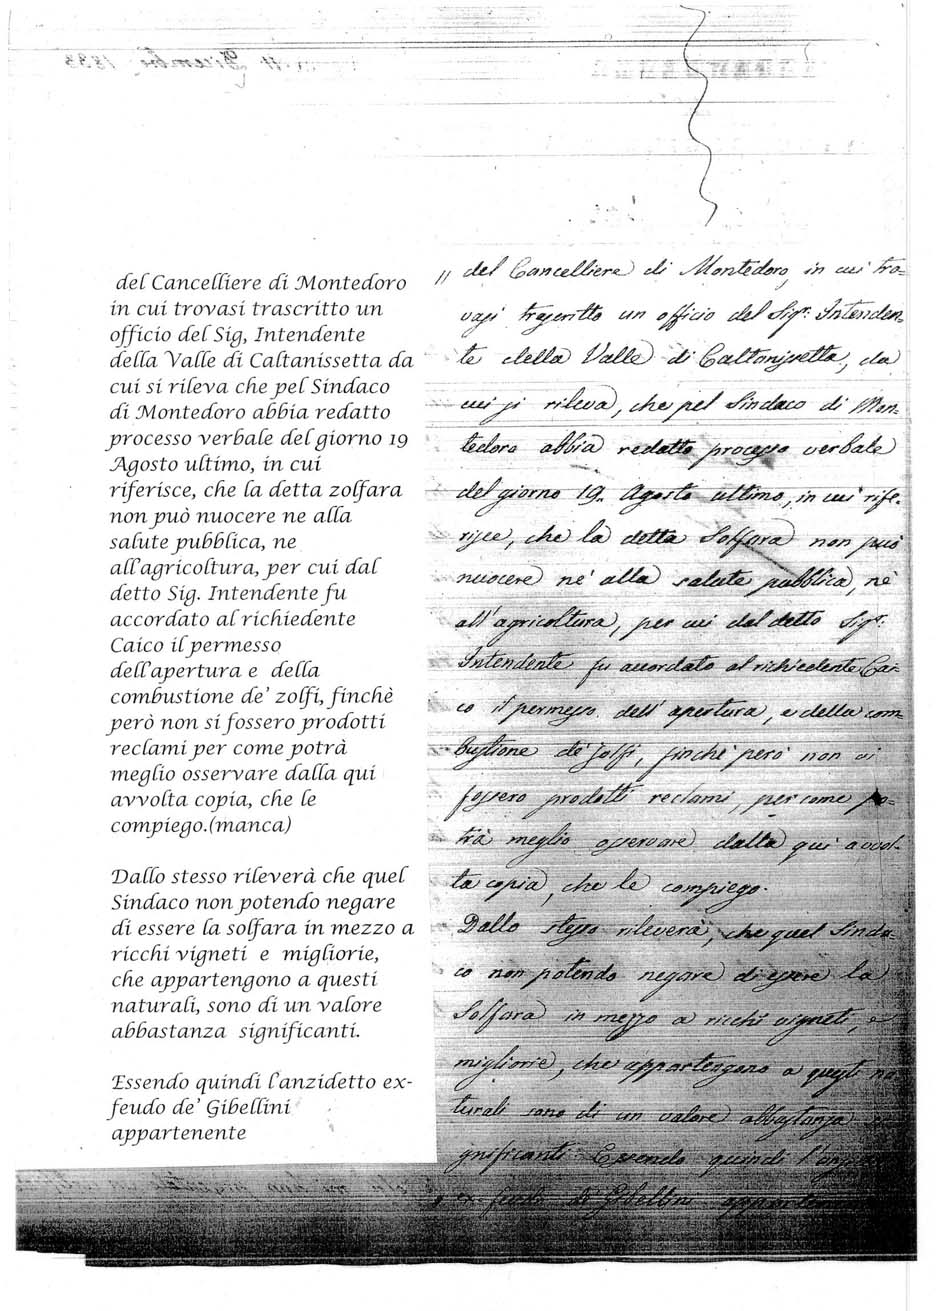 Dicembre 1833
del Cancelliere di Montedoro
in cui trovasi trascritto un
officio del Sig, Intendente
della Valle di Caltanissetta da
cui si rileva che pel Sindaco
di Montedoro abbia redatto
processo verbale del giorno 19
Agosto ultimo, in cui
riferisce, che la detta zolfara
non può nuocere ne alla
salute pubblica, ne
all'agricoltura, per cui dal
detto Sig. Intendente fu
accordato al richiedente
Caico il permesso
dell'apertura e della
combustione de' zolfi, finchè
però non si fossero prodotti
reclami per come potrà
meglio osservare dalla qui
avvolta copia, che le
compiego.(manca)
Dallo stesso rileverà che quel
Sindaco non potendo negare
di essere la solfara in mezzo a
ricchi vigneti e migliorie,
che appartengono a questi
naturali, sono di un valore
abbastanza significanti.
Essendo quindi l'anzidetto ex-
feudo de' Gibellini
appartenente
" del Cancelliere di Montedoro, in cui tro=
vasi trascritto un officio del Sigr. Intenden=
te della Valle di Caltanissetta, da
cui si rileva, che pel Sindaco di Mon=
tedoro abbia redatto processo verbale
del giorno 19. Agosto ultimo, in cui rife=
risce, che la detta Solfara non può
nuocere nè alla salute pubblica, nè
all'agricoltura, per cui dal detto Sigr.
Intendente fu accordato al richiedente Cai=
co il permesso dell'apertura, e della com=
bustione de' solfi, finchè però non vi
fossero prodotti reclami, per come po=
trà meglio osservare dalla qui avvol=
ta copia, che le compiego.
Dallo stesso rileverà, che quel Sinda=
co non potendo negare di essere la
Solfara in mezzo a ricchi vigneti, e
migliorie, che appartengono a questi na
turali sono di un valore abbastanza
gnificanti Essendo quindi
ex feudo di Gibellini